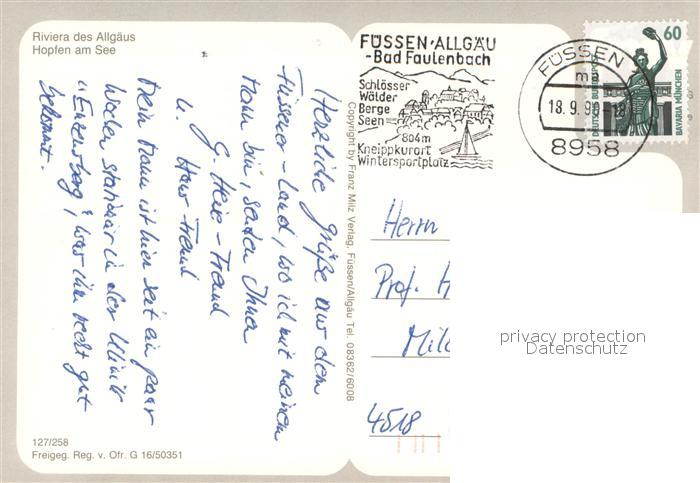 Riviera des Allgäus
Hopfen am See
Herzliche Grüße aus dem
Füssener-Land, wo ich mit meinem
Mann bin, senden Ihnen
G.
u. Hans
Mein Mann ist hier seit ein paar
Wochen stationär in der Klinik
"Enzensberg", was ihm recht gut
bekommt.
127/258
Freigeg. Reg. v. Ofr. G 16/50351
Copyright by Franz Milz Verlag, Füssen/Allgäu Tel. 08362/6008
FÜSSEN·ALLGÄU
-Bad Faulenbach
Schlösser
Wälder
Berge
Seen
804m
Kneippkurort
Wintersportplatz
FÜSSEN
ma
18.9.9
18
8958
60
DEUTSCHE BUNDESPOST
BAVARIA MÜNCHEN
Herrn
Prof.
4518
privacy protection
Datenschutz